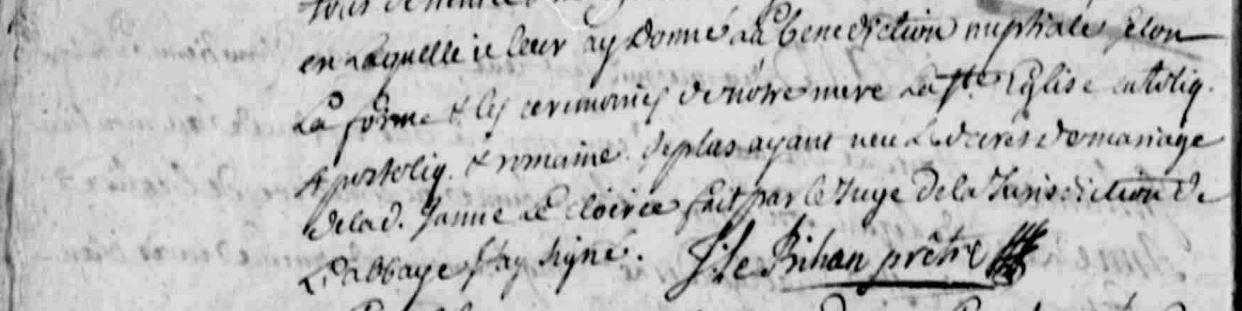 en laquelle ie leur ay donné la benediction nuptiale selon
La forme & les ceremonies de notre mere La Ste Eglise catoliq.
Apostoliq. & romaine. deplus ayant veu Le decret de mariage
de lad. Janne Le cloirec fait par le Juge de la Jurisdiction de
L'abbaye J'ay signé. J: Le Bihan prêtre